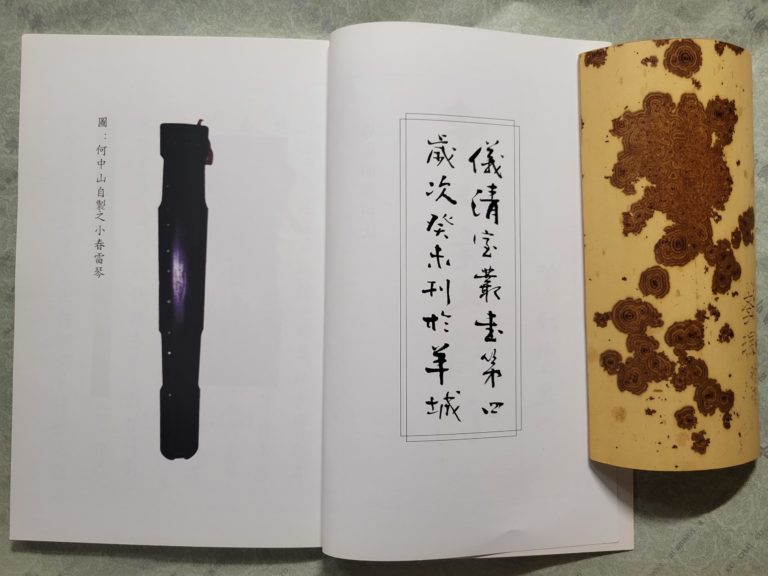 儀清室叢書第四
歲次癸未刊於羊城
圖：何中山自製之小春雷琴